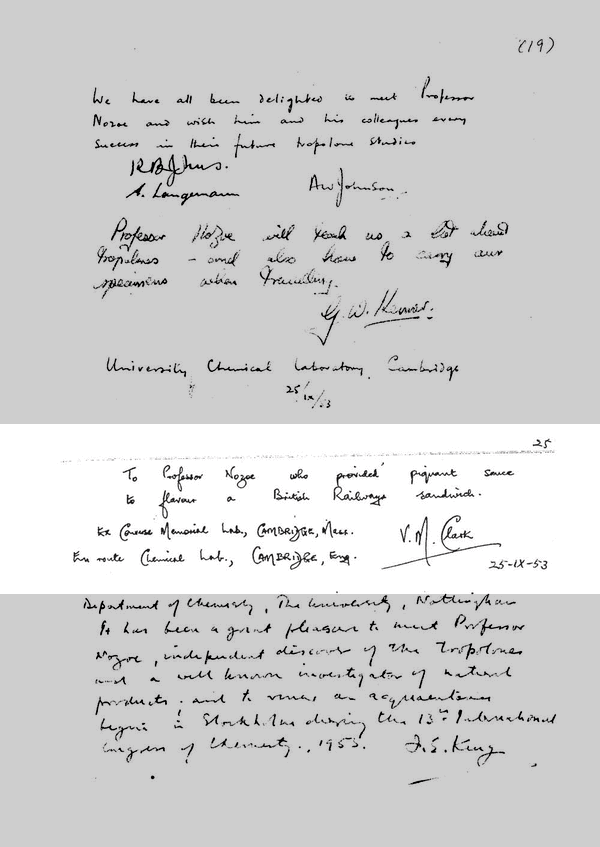 (19)
We have all been delighted to meet Professor
Nozoe and wish him and his colleagues every
success in their future tropolone studies
A. W. Johnson.
Professor Nozoe will teach us a lot about
tropolones - and also how to carry our
specimens when travelling.
G. W. Kenner.
University Chemical Laboratory, Cambridge
25/ix/53
25
To Professor Nozoe who provided piquant sauce
to flavour a British Railways sandwich.
Ex Converse Memorial Lab., CAMBRIDGE, Mass.
V. M. Clark
En route Chemical Lab., CAMBRIDGE, Eng.
25-IX-53
Department of Chemistry, The University, Nottingham
It has been a great pleasure to meet Professor
Nozoe, independent discover of the tropolones
and a well known investigator of natural
products; and to renew an acquaintance
begun in Stockholm during the 13th International
Congress of Chemistry., 1953.
F. E. King